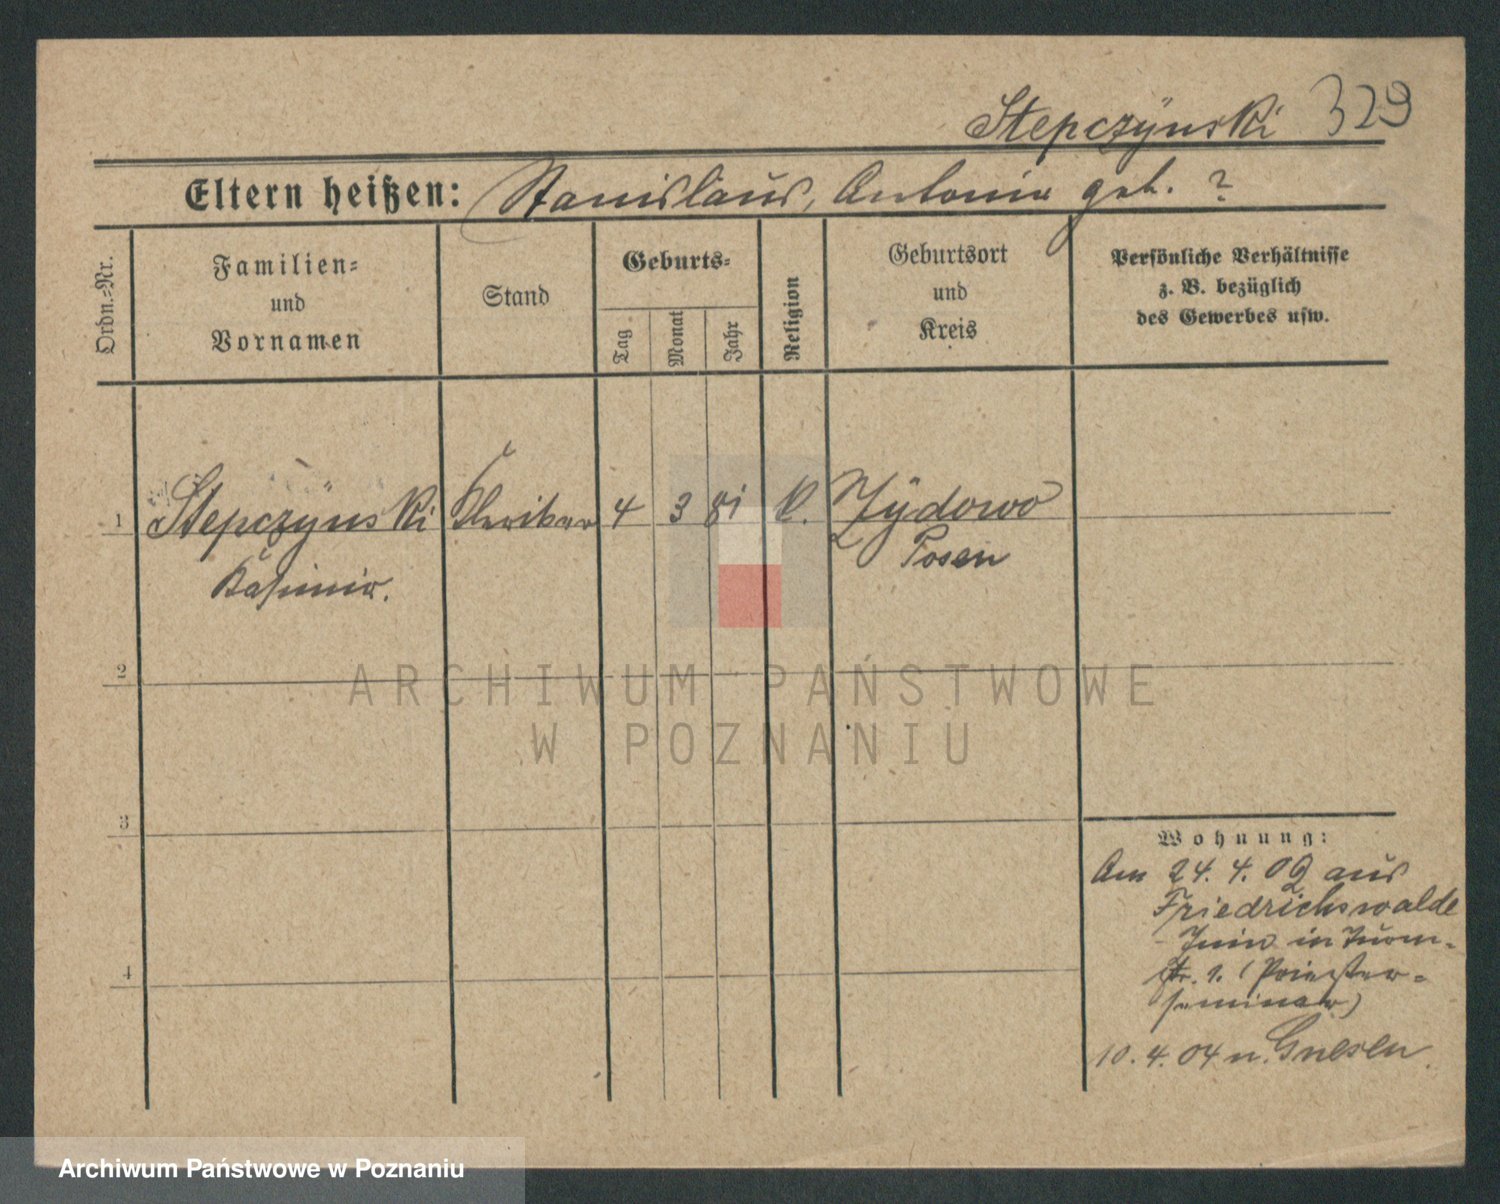 Stepczÿnski 329
Eltern heißen: Stanislaus, Antonie geb. ?
Ordn.-Nr.
Familien-
und
Vornamen
Stand
Geburts-
Tag
Monat
Jahr
Religion
Geburtsort
und
Kreis
Persönliche Verhältnisse
z. B. bezüglich
des Gewerbes usw.
1 Stepczÿnski Kleriker 4 3 81 k. Zÿdowo
Kasimir. Posen
2
3
4
Wohnung:
Am 24. 4. 02 aus
Friedrichswalde
Znin in Turm-
str. 1. (Priester-
seminar)
10. 4. 04 n. Gnesen
ARCHIWUM PAŃSTWOWE
W POZNANIU
Archiwum Państwowe w Poznaniu